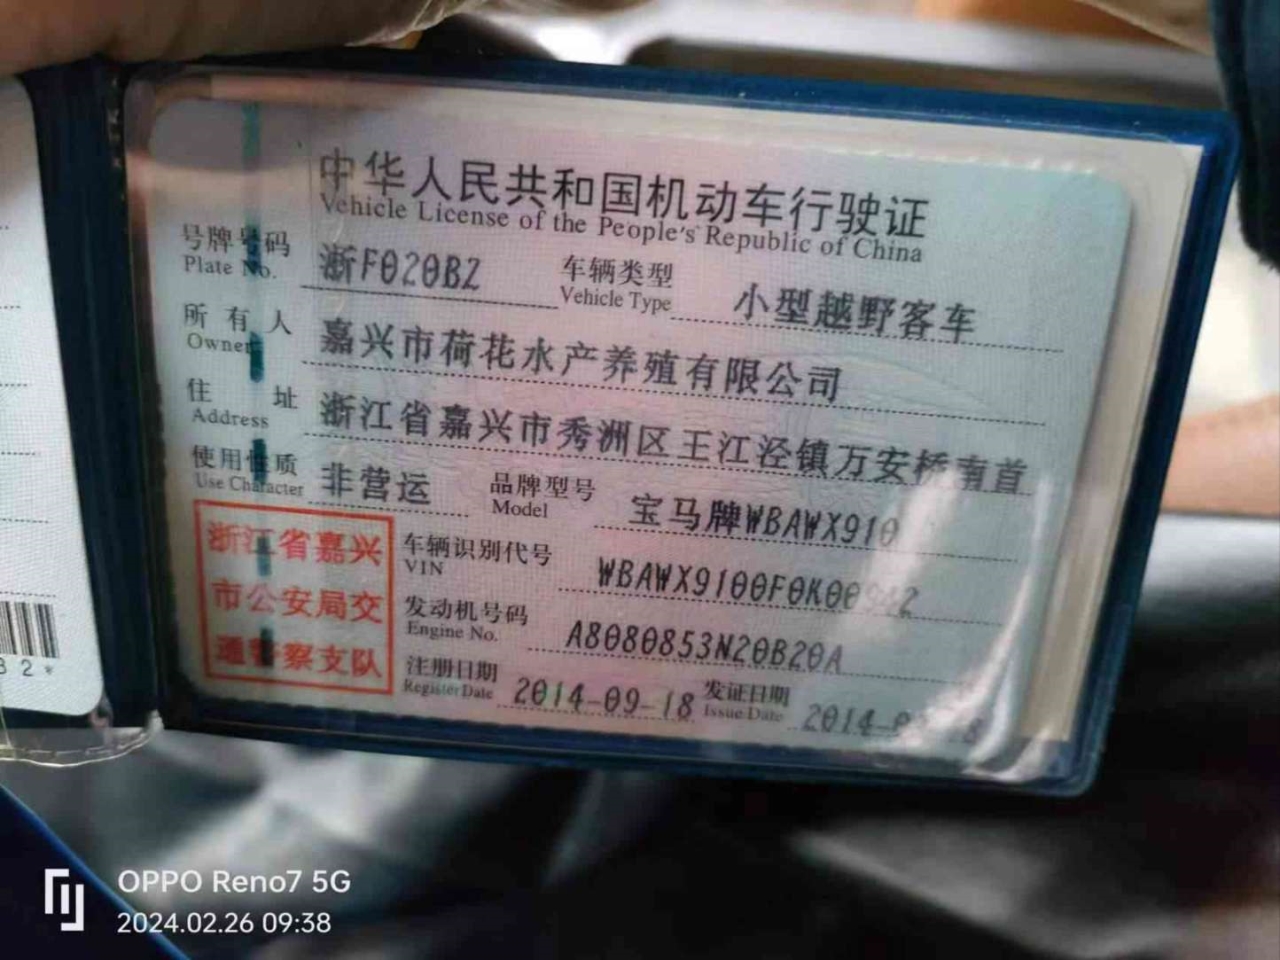 中华人民共和国机动车行驶证
Vehicle License of the People's Republic of China
号牌号码 浙F020BZ 车辆类型 小型越野客车
Plate No. Vehicle Type
所有人 嘉兴市荷花水产养殖有限公司
Owner
住址 浙江省嘉兴市秀洲区王江泾镇万安桥南首
Address
使用性质 非营运 品牌型号 宝马牌WBAWX910
Use Character Model
浙江省嘉兴
市公安局交
通警察支队
车辆识别代号
VIN
发动机号码 A8080853N20B20A
Engine No.
注册日期 2014-09-18 发证日期
Register Date Issue Date
OPPO Reno7 5G
2024.02.26 09:38